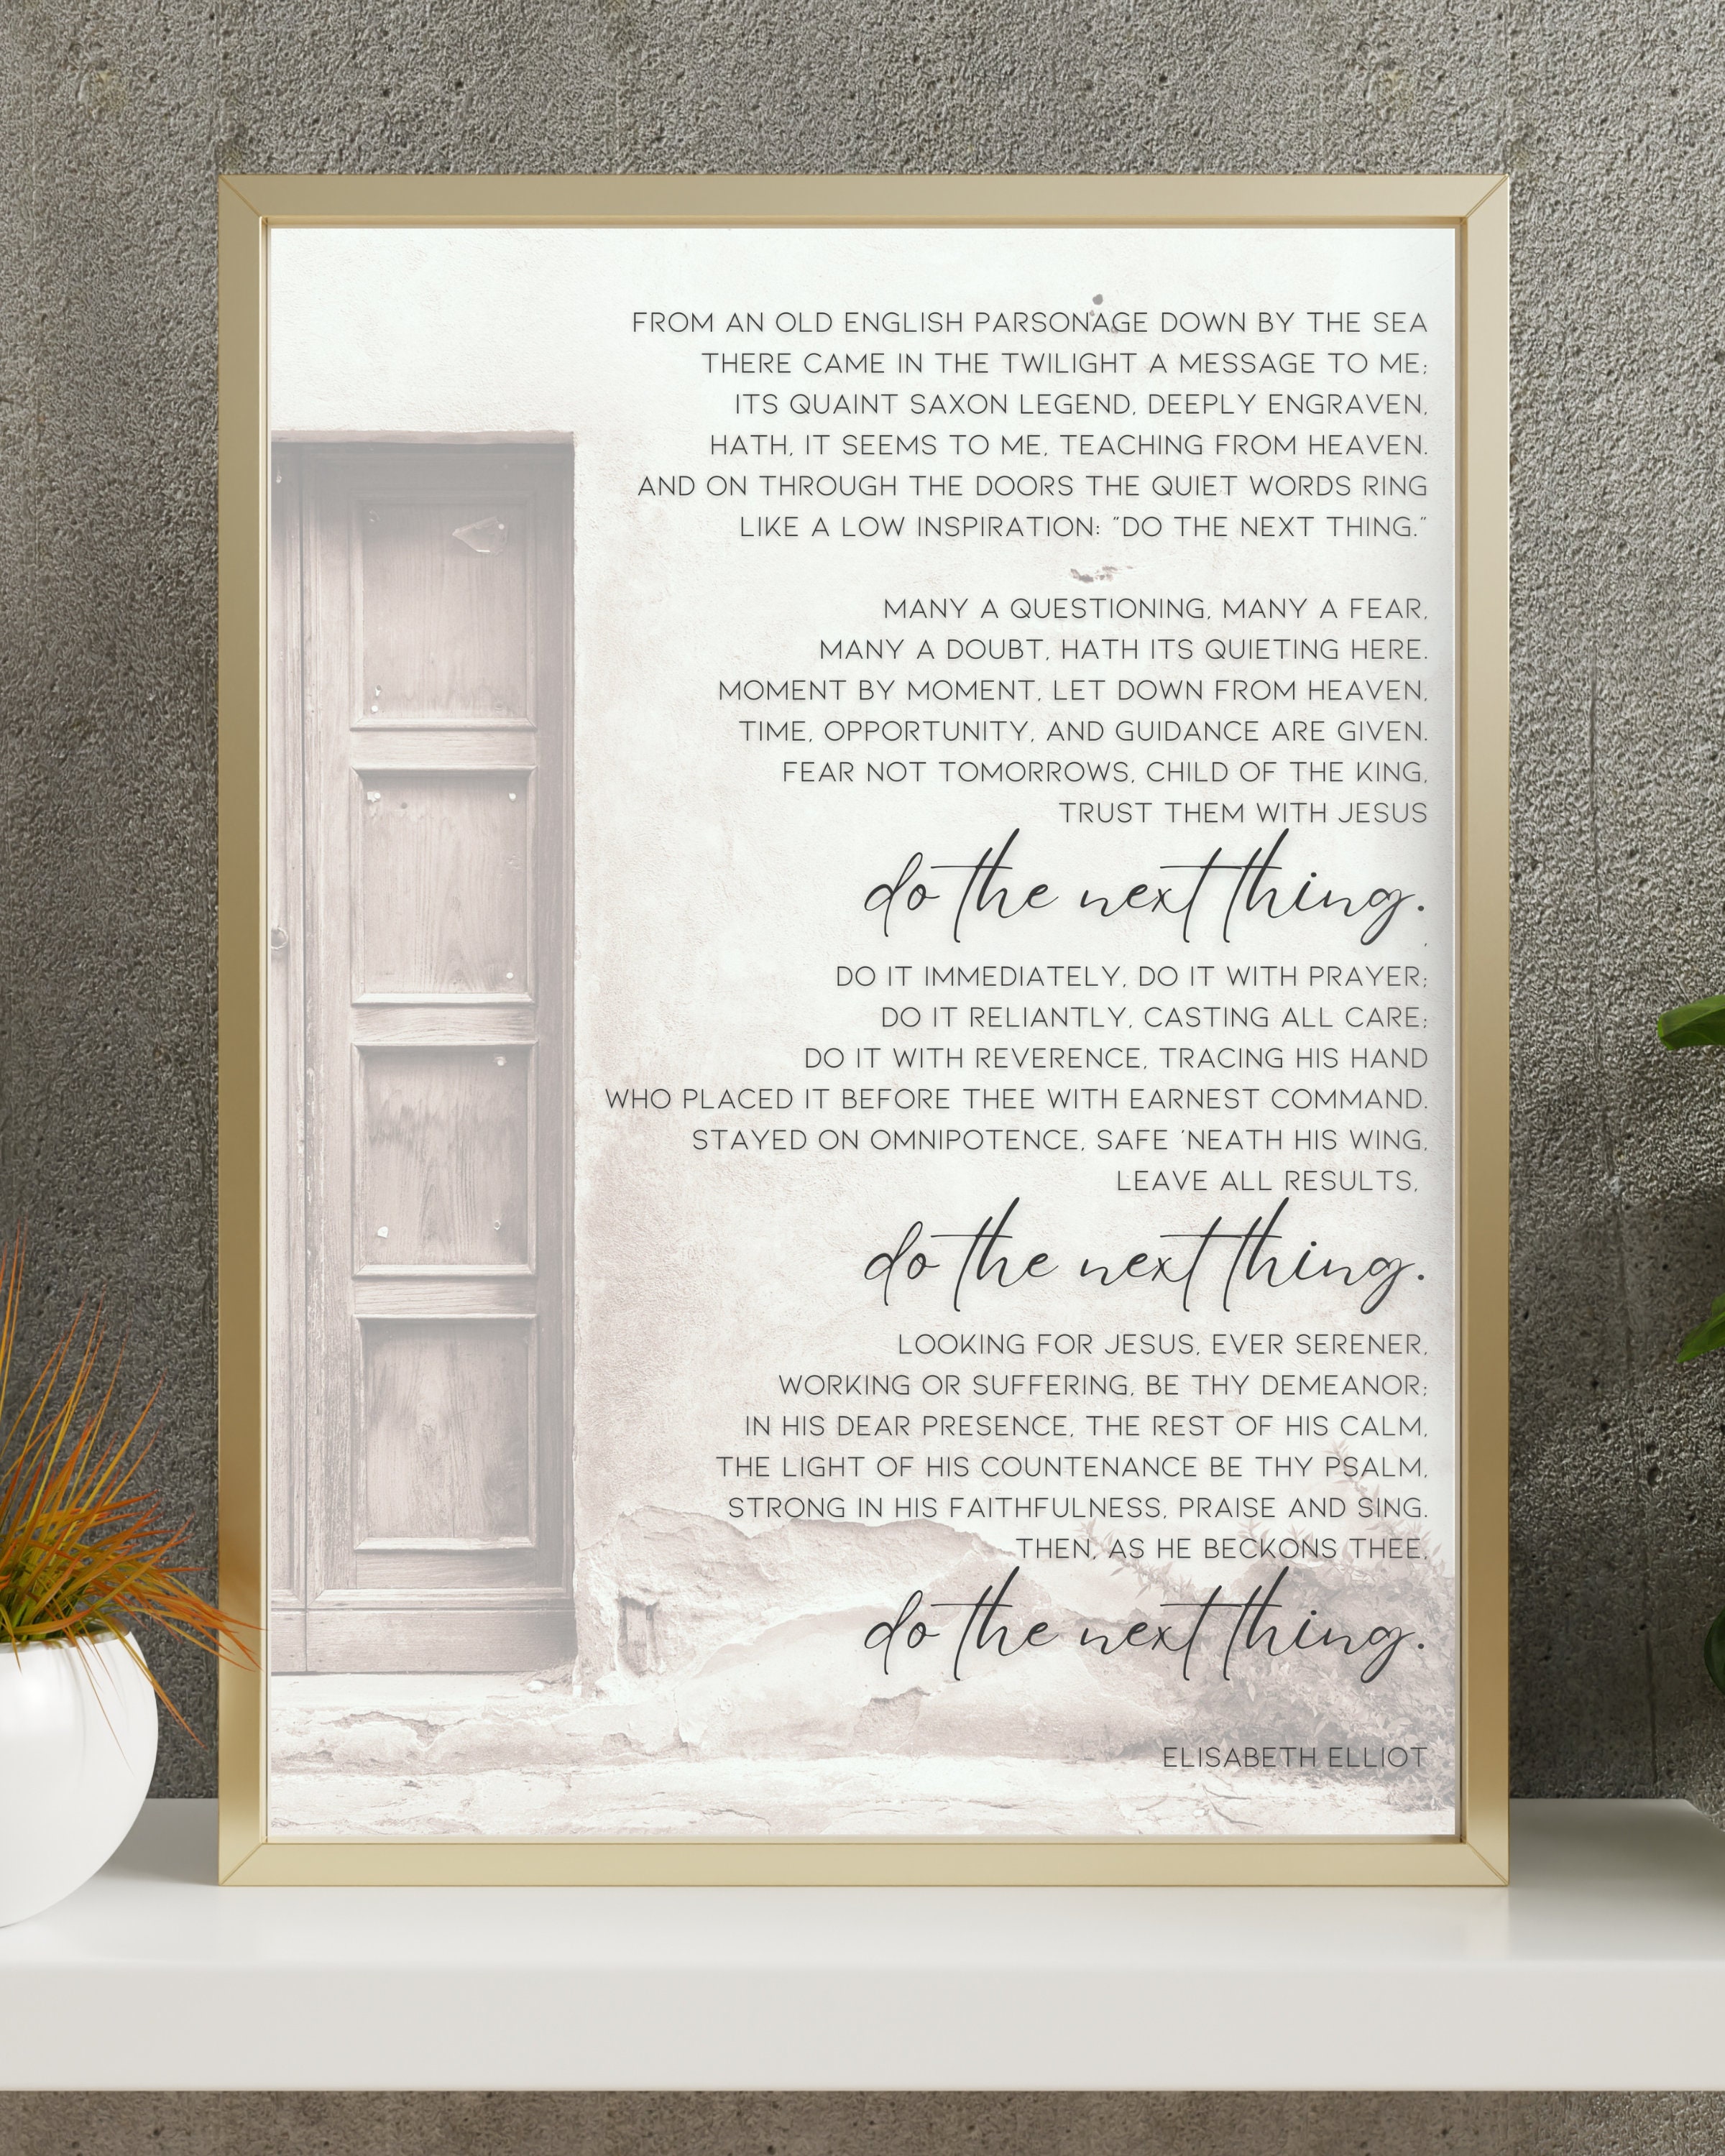 FROM AN OLD ENGLISH PARSONAGE DOWN BY THE SEA
THERE CAME IN THE TWILIGHT A MESSAGE TO ME;
ITS QUAINT SAXON LEGEND, DEEPLY ENGRAVEN,
HATH, IT SEEMS TO ME, TEACHING FROM HEAVEN.
AND ON THROUGH THE DOORS THE QUIET WORDS RING
LIKE A LOW INSPIRATION: "DO THE NEXT THING."
MANY A QUESTIONING, MANY A FEAR,
MANY A DOUBT, HATH ITS QUIETING HERE.
MOMENT BY MOMENT, LET DOWN FROM HEAVEN,
TIME, OPPORTUNITY, AND GUIDANCE ARE GIVEN.
FEAR NOT TOMORROWS, CHILD OF THE KING,
TRUST THEM WITH JESUS
do the next thing.
DO IT IMMEDIATELY, DO IT WITH PRAYER;
DO IT RELIANTLY, CASTING ALL CARE;
DO IT WITH REVERENCE, TRACING HIS HAND
WHO PLACED IT BEFORE THEE WITH EARNEST COMMAND.
STAYED ON OMNIPOTENCE, SAFE 'NEATH HIS WING,
LEAVE ALL RESULTS,
do the next thing.
LOOKING FOR JESUS, EVER SERENER,
WORKING OR SUFFERING, BE THY DEMEANOR;
IN HIS DEAR PRESENCE, THE REST OF HIS CALM,
THE LIGHT OF HIS COUNTENANCE BE THY PSALM,
STRONG IN HIS FAITHFULNESS, PRAISE AND SING.
THEN, AS HE BECKONS THEE,
do the next thing.
ELISABETH ELLIOT